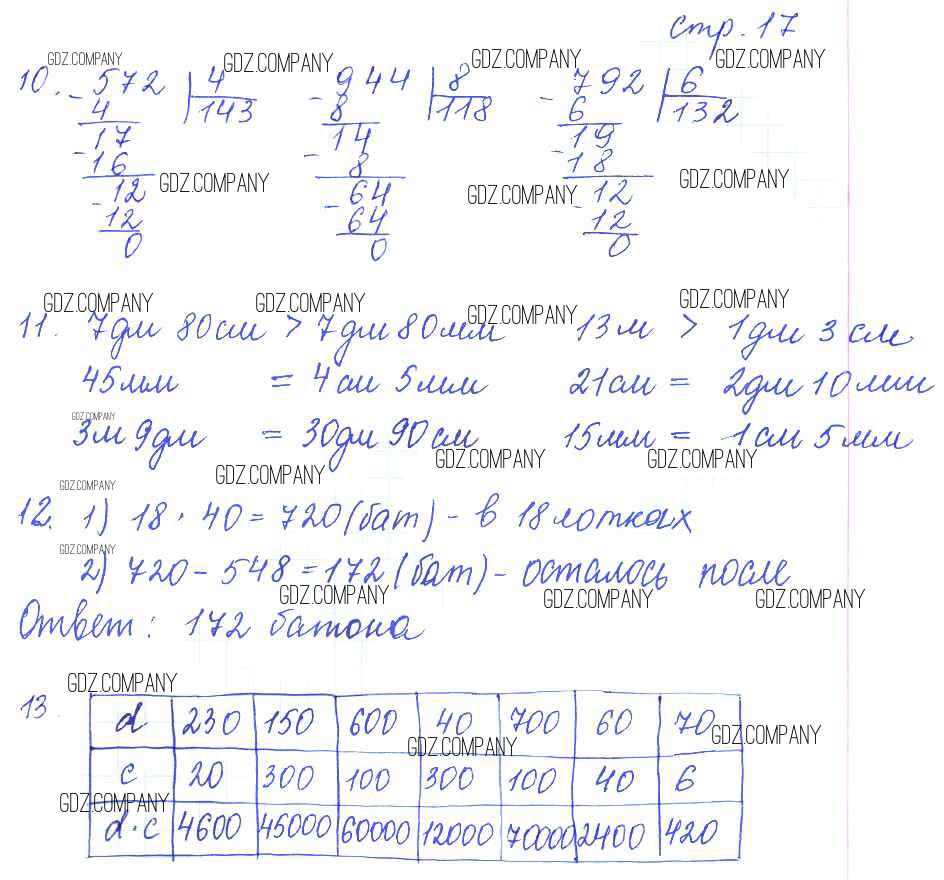 стр. 17
GDZ.COMPANY GDZ.COMPANY GDZ.COMPANY GDZ.COMPANY
10. - 572 | 4 - 944 | 8 - 792 | 6
4 143 8 118 6 132
- 17 - 14 - 19
16 8 18
GDZ.COMPANY GDZ.COMPANY GDZ.COMPANY
- 12 - 64 - 12
12 64 12
0 0 0
GDZ.COMPANY GDZ.COMPANY GDZ.COMPANY GDZ.COMPANY
11. 7дм 80см > 7дм 80мм 13м > 1дм 3см
45мм = 4см 5мм 21см = 2дм 10мм
GDZ.COMPANY
3м 9дм = 30дм 90см 15мм = 1см 5мм
GDZ.COMPANY GDZ.COMPANY GDZ.COMPANY
GDZ.COMPANY
12. 1) 18 · 40 = 720 (бат) - в 18 лотках
GDZ.COMPANY
2) 720 - 548 = 172 (бат) - осталось после
GDZ.COMPANY GDZ.COMPANY GDZ.COMPANY
Ответ: 172 батона
GDZ.COMPANY
13.
d 230 150 600 40 700 60 70
GDZ.COMPANY GDZ.COMPANY
c 20 300 100 300 100 40 6
GDZ.COMPANY
d·c 4600 45000 60000 12000 70000 2400 420